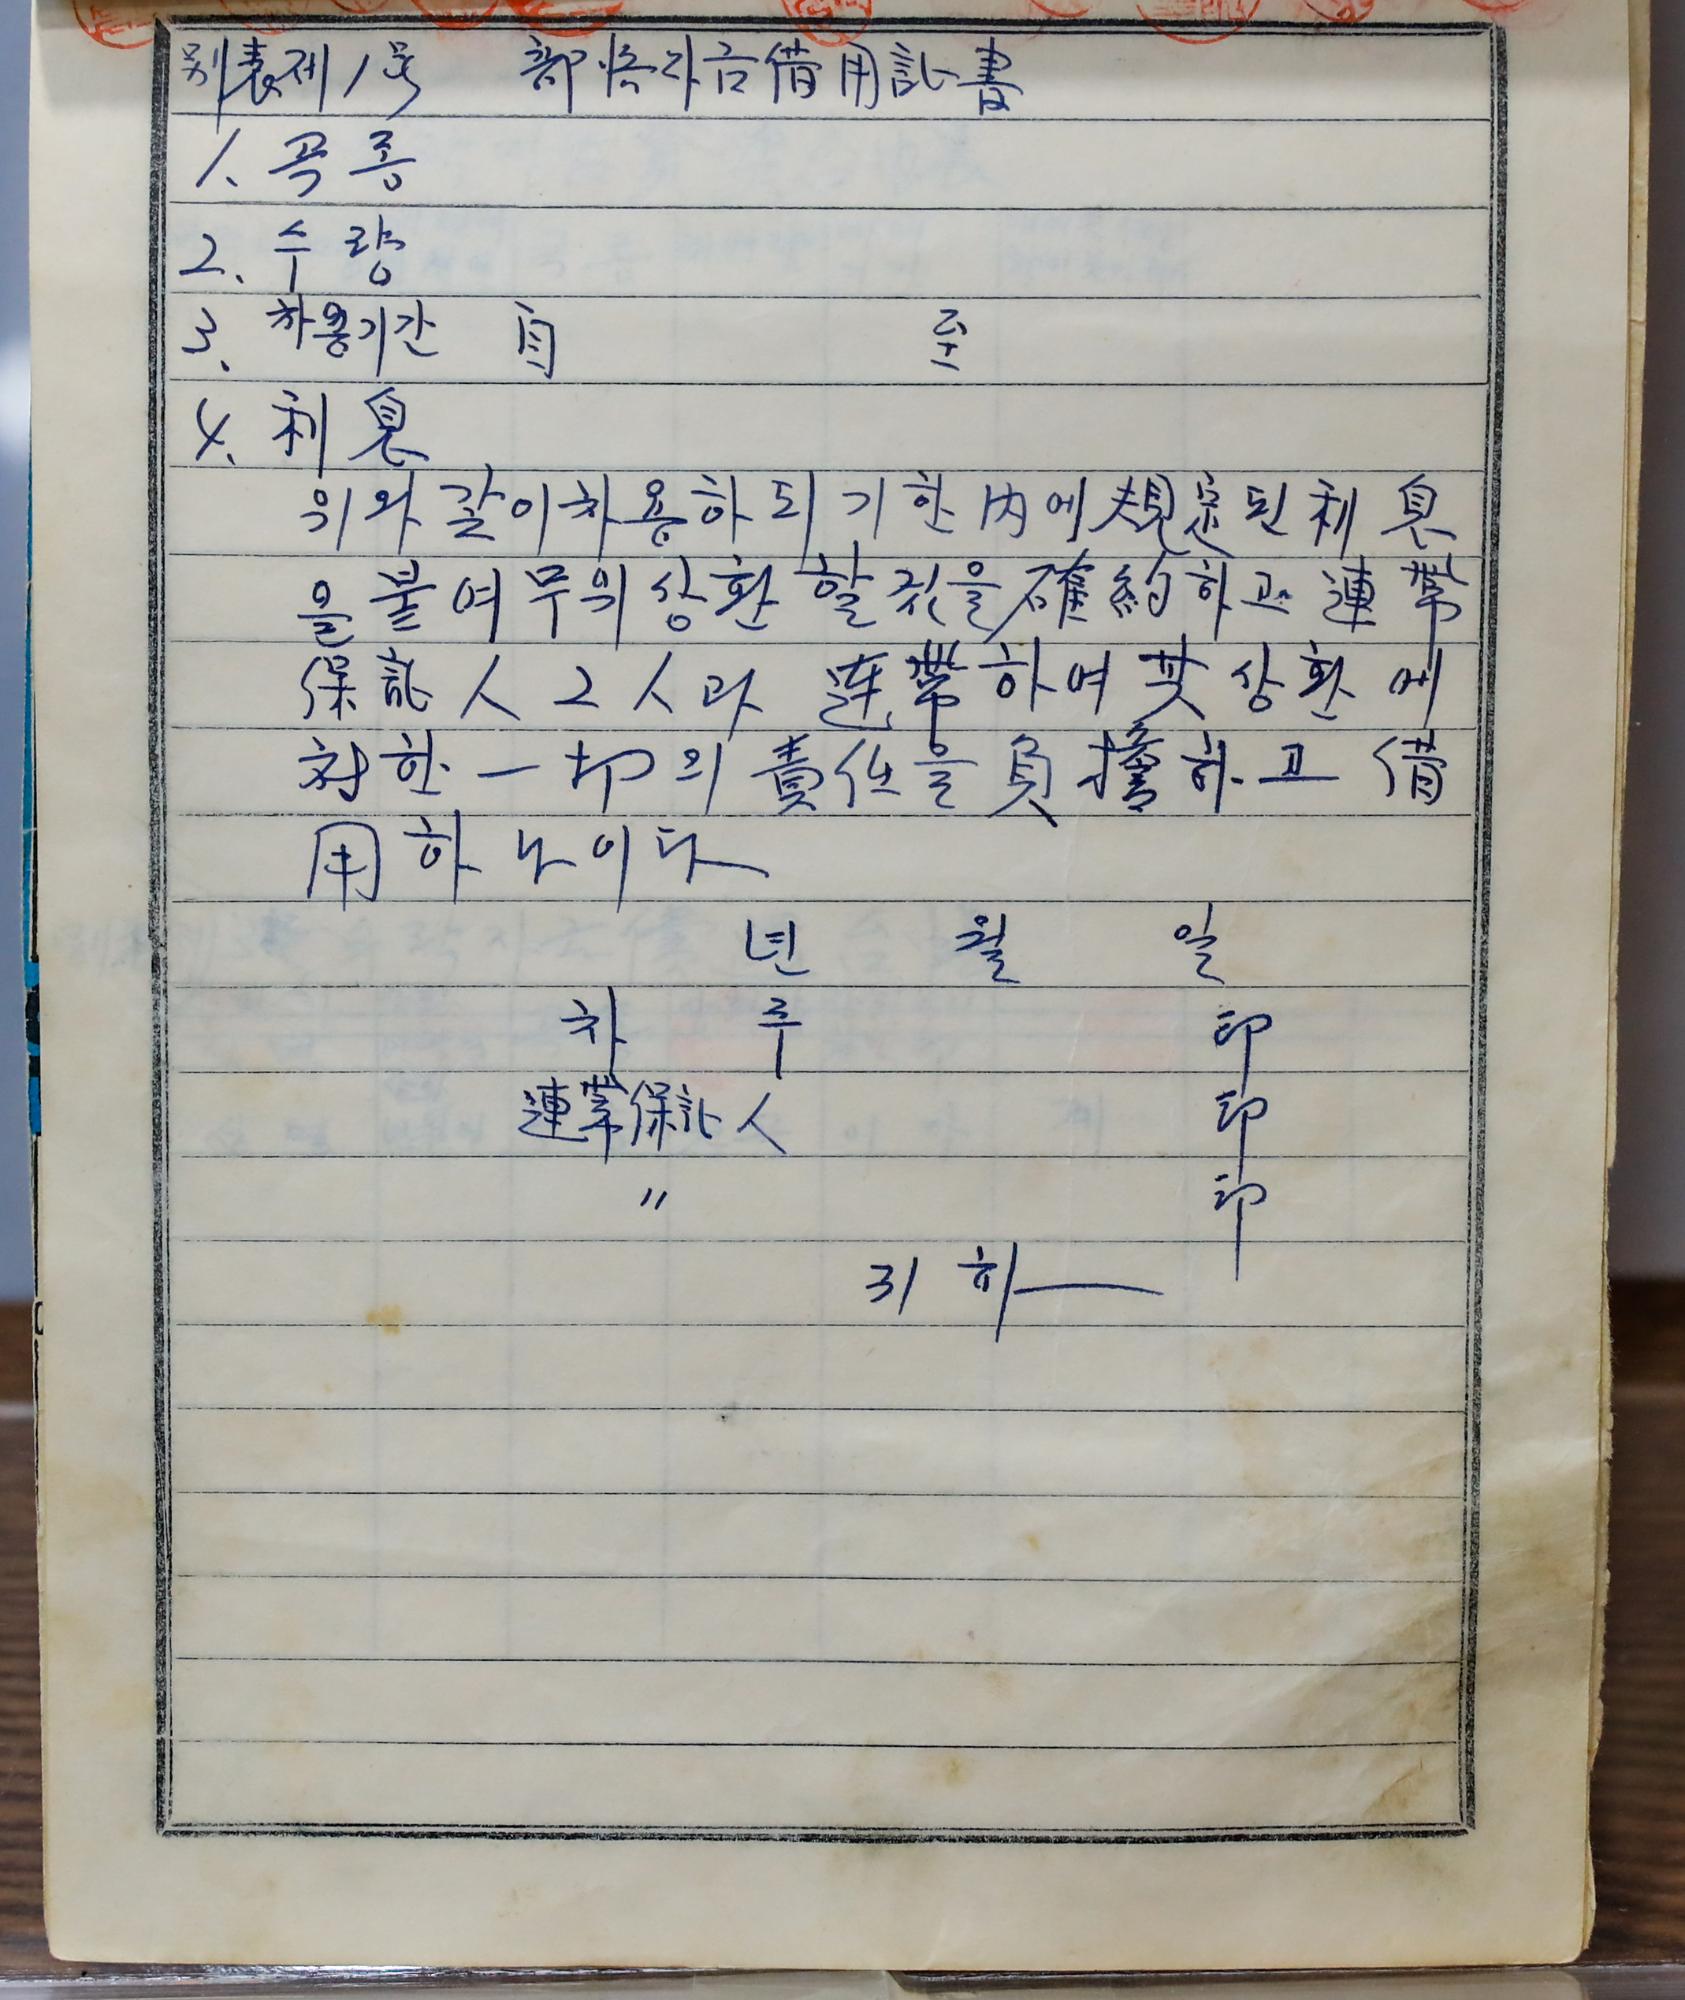 別表제1号 部落자금借用証書
1. 곡종
2. 수량
3. 차용기간 自 至
4. 利息
위와 같이 차용하되 기한 内에 規定된 利息
을 붙여 무위 상환 할 것을 確約하고 連帶
保証人 2人과 連帶하여 其 상환에
対한 一切의 責任을 負擔하고 借
用하나이다
년 월 일
차 주 印
連帶保証人 印
〃 印
귀하